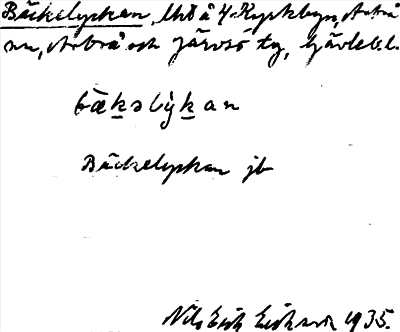 Bäckelyckan, Utö å 4 Kyrkbyn, Arbrå
sn, Arbrå och Järvsö tg, Gävlebl.
bæ̀kəlỳkan
Bäckelyckan jb
Nils Erik Eriksson 1935.